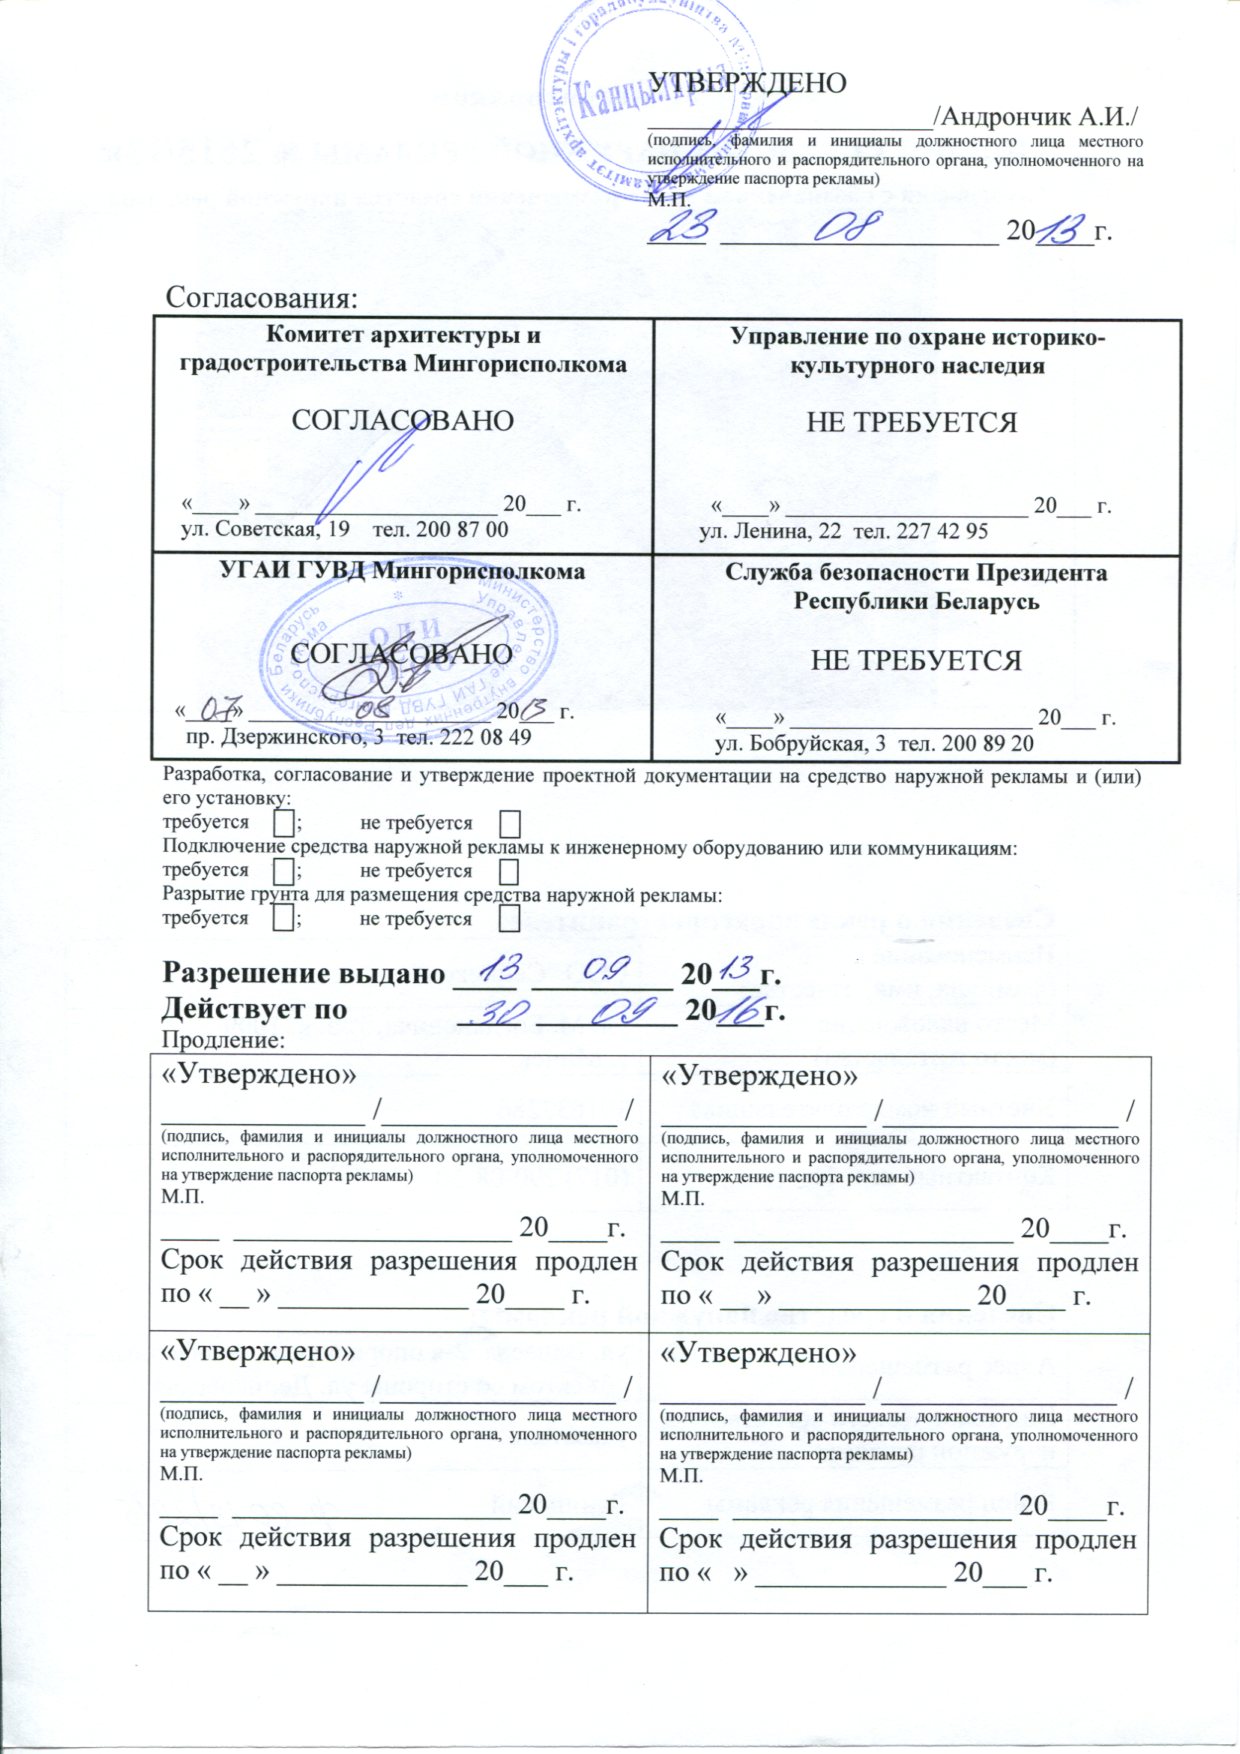 Канцылярыя
УТВЕРЖДЕНО
____________________/Андрончик А.И./
(подпись, фамилия и инициалы должностного лица местного
исполнительного и распорядительного органа, уполномоченного на
утверждение паспорта рекламы)
М.П.
23 08 2013г.
Согласования:
Комитет архитектуры и
градостроительства Мингорисполкома
СОГЛАСОВАНО
«____» ____________________ 20___ г.
ул. Советская, 19 тел. 200 87 00
Управление по охране историко-
культурного наследия
НЕ ТРЕБУЕТСЯ
«____» ____________________ 20___ г.
ул. Ленина, 22 тел. 227 42 95
УГАИ ГУВД Мингорисполкома
СОГЛАСОВАНО
«07» 08 2013 г.
пр. Дзержинского, 3 тел. 222 08 49
Служба безопасности Президента
Республики Беларусь
НЕ ТРЕБУЕТСЯ
«____» ____________________ 20___ г.
ул. Бобруйская, 3 тел. 200 89 20
Разработка, согласование и утверждение проектной документации на средство наружной рекламы и (или)
его установку:
требуется ; не требуется
Подключение средства наружной рекламы к инженерному оборудованию или коммуникациям:
требуется ; не требуется
Разрытие грунта для размещения средства наружной рекламы:
требуется ; не требуется
Разрешение выдано 13 09 2013г.
Действует по 30 09 2016г.
Продление:
«Утверждено»
______________ /________________ /
(подпись, фамилия и инициалы должностного лица местного
исполнительного и распорядительного органа, уполномоченного
на утверждение паспорта рекламы)
М.П.
____ ___________________ 20____г.
Срок действия разрешения продлен
по « __ » _____________ 20____ г.
«Утверждено»
______________ /________________ /
(подпись, фамилия и инициалы должностного лица местного
исполнительного и распорядительного органа, уполномоченного
на утверждение паспорта рекламы)
М.П.
____ ___________________ 20____г.
Срок действия разрешения продлен
по « __ » _____________ 20____ г.
«Утверждено»
______________ /________________ /
(подпись, фамилия и инициалы должностного лица местного
исполнительного и распорядительного органа, уполномоченного
на утверждение паспорта рекламы)
М.П.
____ ___________________ 20____г.
Срок действия разрешения продлен
по « __ » _____________ 20___ г.
«Утверждено»
______________ /________________ /
(подпись, фамилия и инициалы должностного лица местного
исполнительного и распорядительного органа, уполномоченного
на утверждение паспорта рекламы)
М.П.
____ ___________________ 20____г.
Срок действия разрешения продлен
по « » _____________ 20___ г.